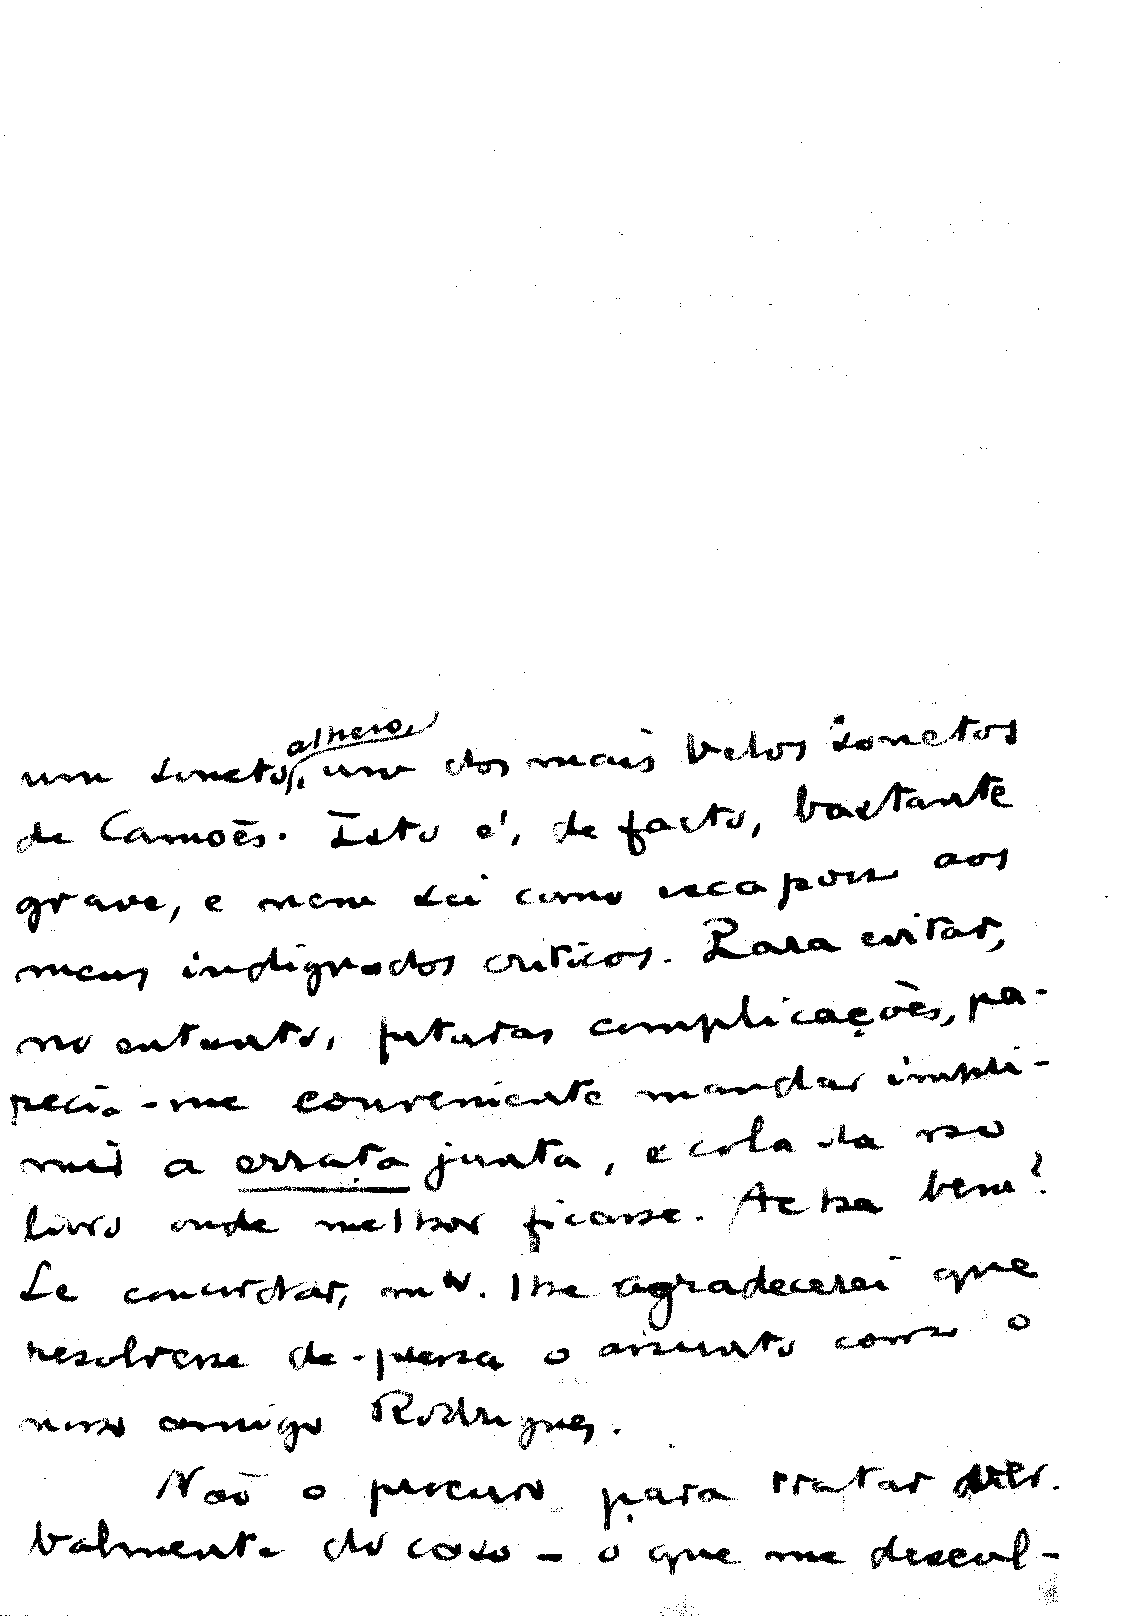 um soneto alheio, um dos mais belos sonetos
de Camões. Isto é, de facto, bastante
grave, e nem sei como escapar aos
meus indignados criticos. Para evitar,
no entanto, futuras complicações, pa-
recia-me conveniente mandar impri-
mir a errata junta, e cola-la no
livro onde melhor ficasse. Acha bem?
Se concordar, mto. lhe agradecerei que
resolvesse depressa o assunto com o
nosso amigo Rodrigues.
Não o procuro para tratar ver-
balmente do caso - o que me descul-